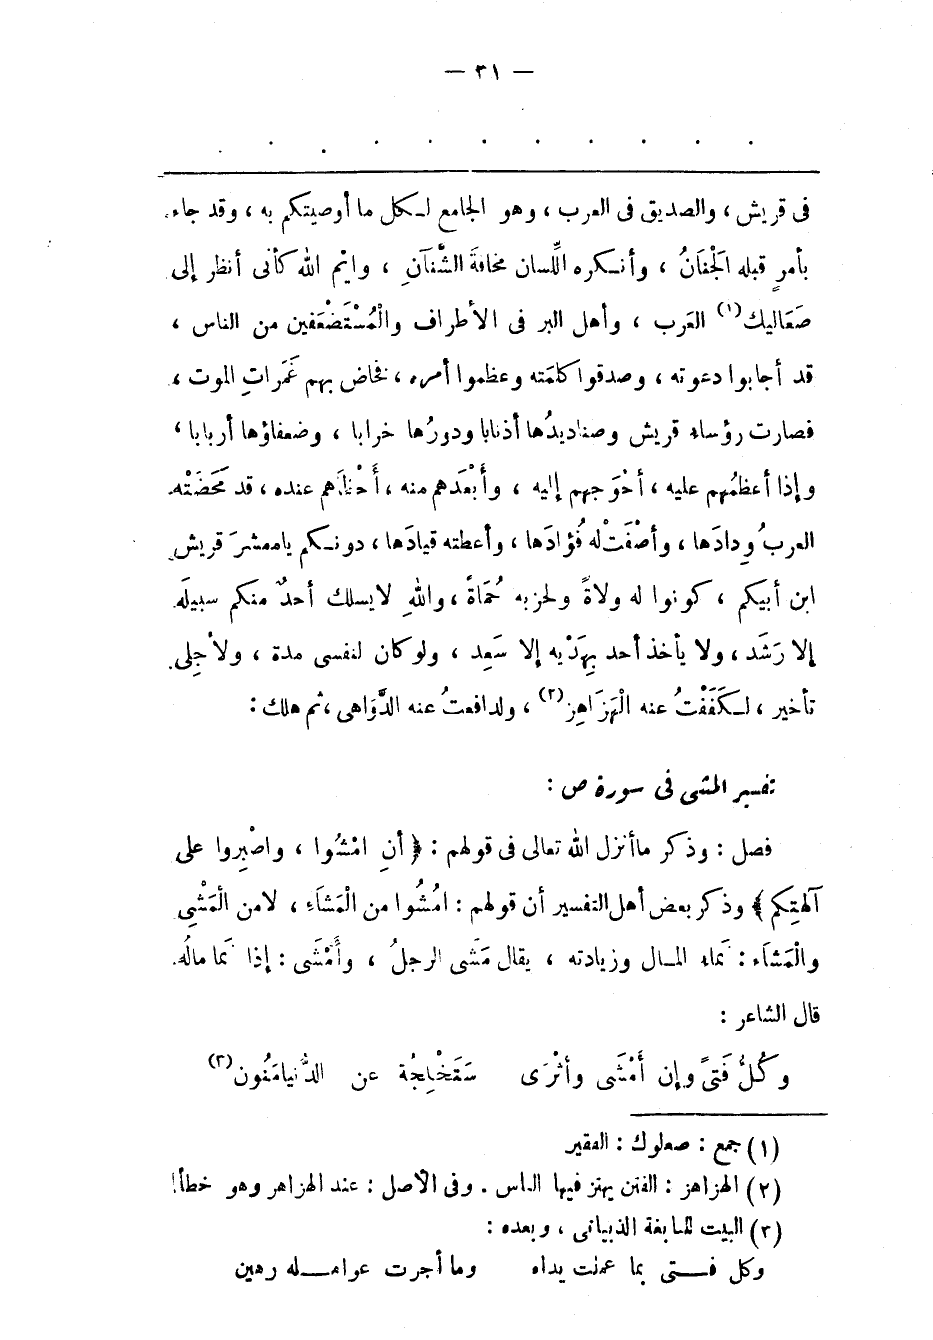 — ٣١ —
فى قريش ، والصديق فى العرب ، وهو الجامع لـكل ما أوصيتكم به ، وقد جاء
بأمرٍ قبله الْجَنَانُ ، وأنـكره اللِّسان مخافةَ الشَّنآنِ ، وايْم الله كأنى أنظر إلى
صَعَاليك(١) العَرب ، وأهل البر فى الأطراف والْمُسْتَضْعَفين من الناس ،
قد أجابوا دعوته ، وصدقوا كلمَته وعظموا أمره ، فخاض بهم غَمَراتِ الموت ،
فصارت رؤساء قريش وصناديدُها أذنابا ودورُها خرابا ، وضعفاؤها أربابا ،
وإذا أعظمُهم عليه ، أحْوَجهم إليه ، وأبْعَدهم منه ، أحْظاهم عنده ، قد مَحَضَتْه
العربُ وِدادَها ، وأصْفَتْ له فُؤادَها ، وأعطته قيادَها ، دونـكم يامعشرَ قريش
ابن أبيكم ، كونوا له ولاةً ولحزبه حُمَاةً ، واللهِ لايسلك أحدٌ منكم سبيلَه
إلا رَشَد ، ولا يأخذ أحد بِهَدْيه إلا سَعِد ، ولو كان لنفسى مدة ، ولأجلى
تأخير ، لـكَفَفْتُ عنه الْهَزَاهِز(٢) ، ولدافعتُ عنه الدَّواهى ، ثم هلك :
تفسير المشى فى سورة ص :
فصل : وذكر ماأنزل الله تعالى فى قولهم : ﴿ أنِ امْشُوا ، واصْبِروا على
آلهتِكم ﴾ وذكر بعض أهل التفسير أن قولهم : امْشُوا من الْمَشَاء ، لامن الْمَشْىِ
والْمَشَاء : نَماء المـال وزيادته ، يقال مَشَى الرجلُ ، وأَمْشَى : إذا نَما مالُه
قال الشاعر :
وكُلُّ فَتىً وإن أَمْشَى وأثْرَى سَتَخْلِجُهُ عن الدُّنيامَنُون(٣)
(١) جمع : صعلوك : الفقير
(٢) الهزاهز : الفتن يهتز فيها الناس . وفى الأصل : عند الهزاهر وهو خطأ!
(٣) البيت للنابغة الذبيانى ، وبعده :
وكل فـتى بما عملت يداه وما أجرت عوامـله رهين